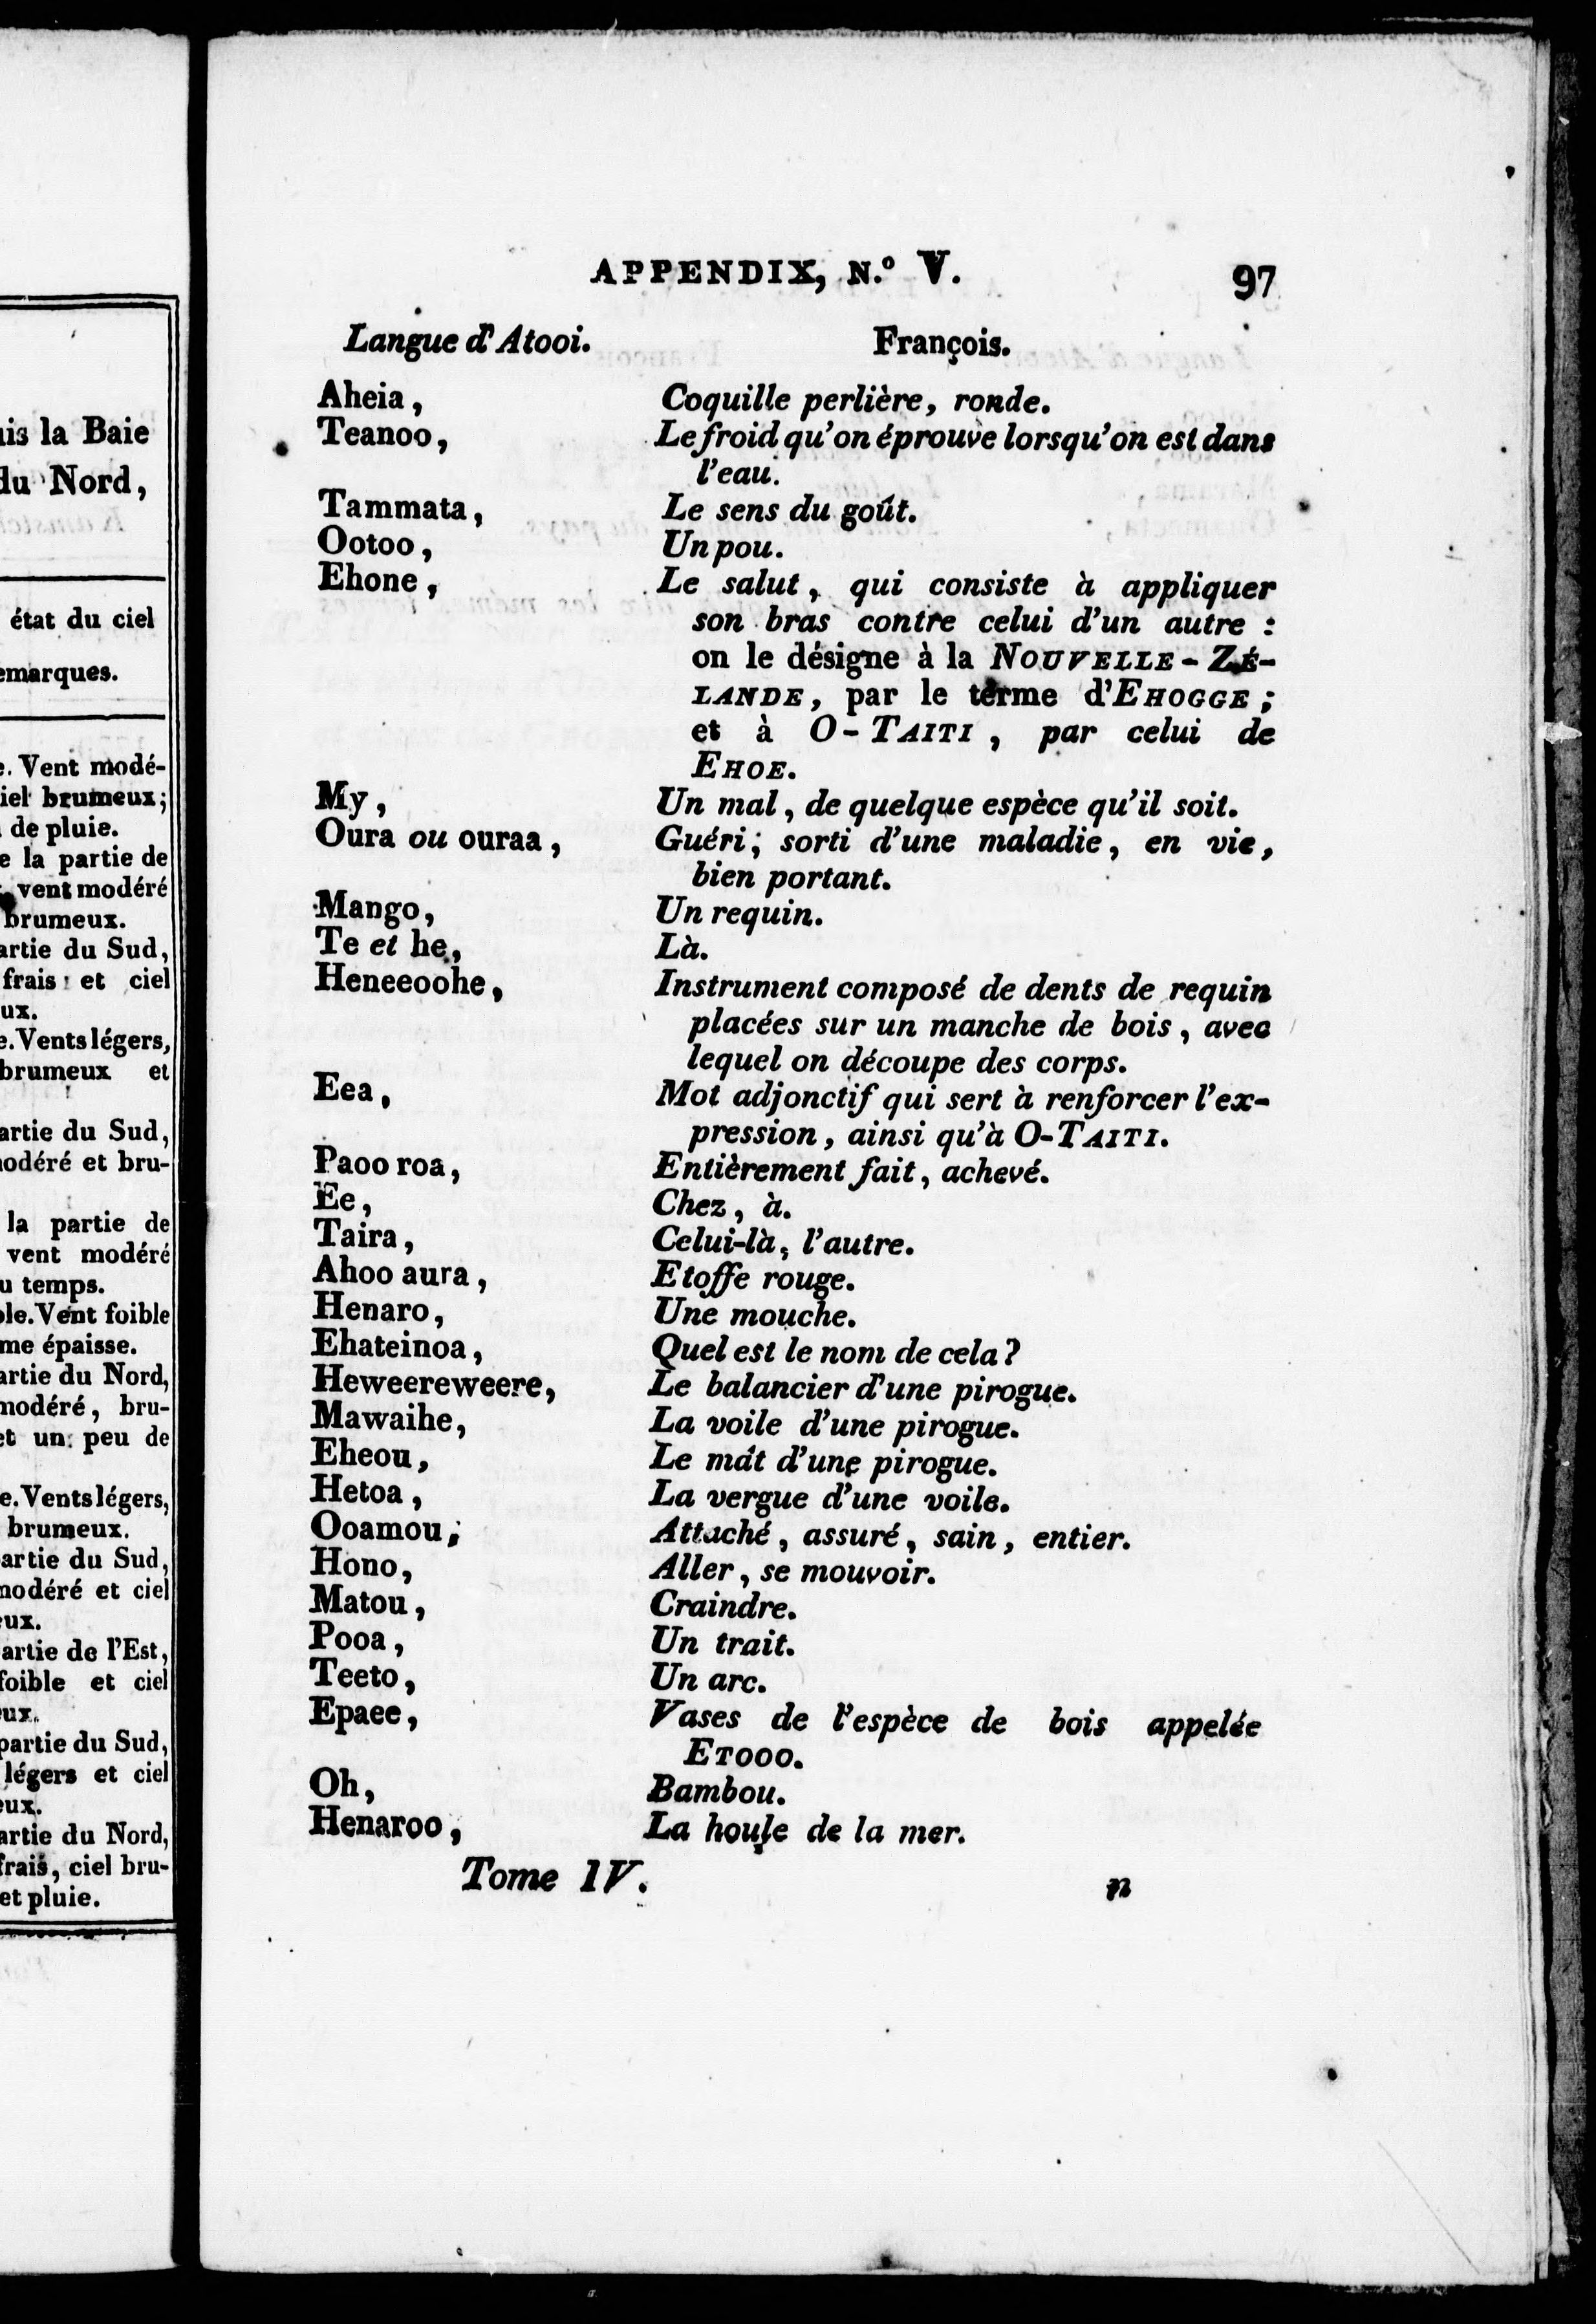 is la Baie
du Nord,
état du ciel
emarques.
e. Vent modé-
iel brumeux;
de pluie.
e la partie de
vent modéré
brumeux.
artie du Sud,
frais et ciel
ux.
e. Vents légers,
brumeux et
artie du Sud,
nodéré et bru-
la partie de
vent modéré
u temps.
ble. Vent foible
me épaisse.
artie du Nord,
modéré, bru-
et un peu de
e. Vents légers,
brumeux.
artie du Sud,
modéré et ciel
eux.
artie de l'Est,
foible et ciel
eux.
partie du Sud,
légers et ciel
eux.
artie du Nord,
frais, ciel bru-
et pluie.
APPENDIX, N.º V. 97
Langue d'Atooi. François.
Aheia, Coquille perlière, ronde.
Teanoo, Le froid qu'on éprouve lorsqu'on est dans
l'eau.
Tammata, Le sens du goût.
Ootoo, Un pou.
Ehone, Le salut, qui consiste à appliquer
son bras contre celui d'un autre :
on le désigne à la NOUVELLE-ZÉ-
LANDE, par le terme d'EHOGGE ;
et à O-TAITI, par celui de
EHOE.
My, Un mal, de quelque espèce qu'il soit.
Oura ou ouraa, Guéri; sorti d'une maladie, en vie,
bien portant.
Mango, Un requin.
Te et he, Là.
Heneeoohe, Instrument composé de dents de requin
placées sur un manche de bois, avec
lequel on découpe des corps.
Eea, Mot adjonctif qui sert à renforcer l'ex-
pression, ainsi qu'à O-TAITI.
Paoo roa, Entièrement fait, achevé.
Ee, Chez, à.
Taira, Celui-là, l'autre.
Ahoo aura, Etoffe rouge.
Henaro, Une mouche.
Ehateinoa, Quel est le nom de cela?
Heweereweere, Le balancier d'une pirogue.
Mawaihe, La voile d'une pirogue.
Eheou, Le mât d'une pirogue.
Hetoa, La vergue d'une voile.
Ooamou, Attaché, assuré, sain, entier.
Hono, Aller, se mouvoir.
Matou, Craindre.
Pooa, Un trait.
Teeto, Un arc.
Epaee, Vases de l'espèce de bois appelée
ETOOO.
Oh, Bambou.
Henaroo, La houle de la mer.
Tome IV. n